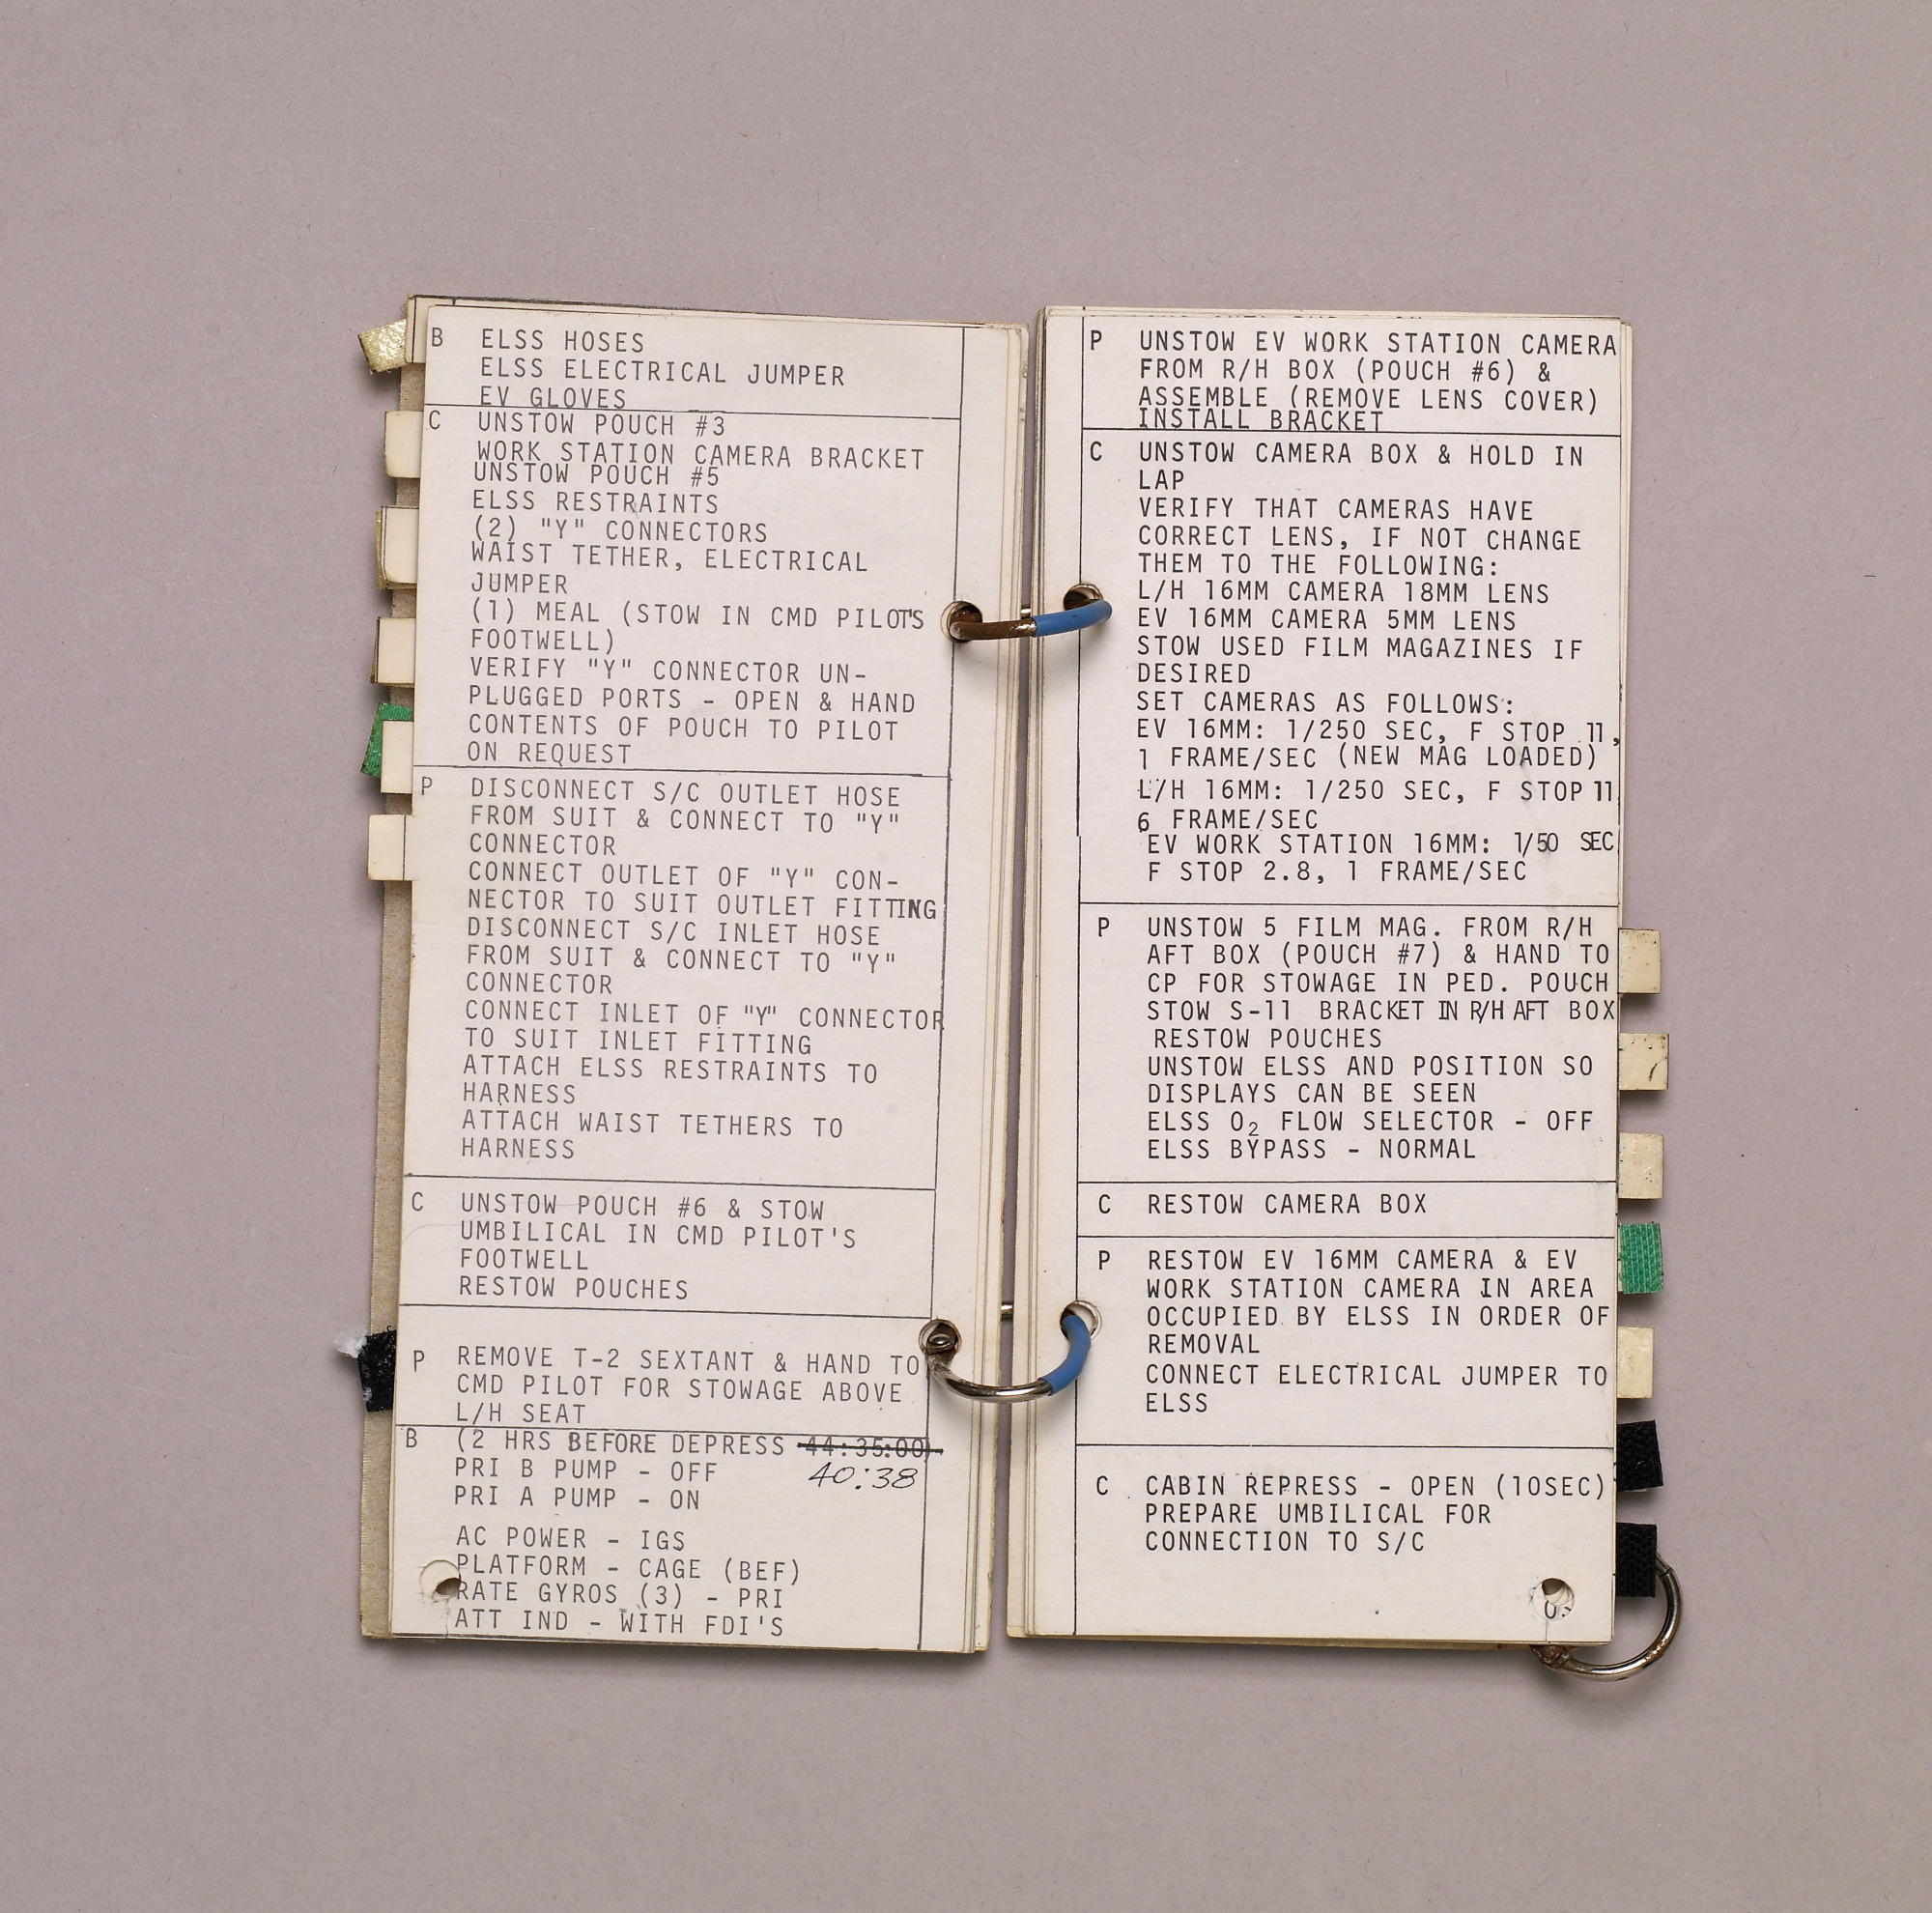 B ELSS HOSES
ELSS ELECTRICAL JUMPER
EV GLOVES
C UNSTOW POUCH #3
WORK STATION CAMERA BRACKET
UNSTOW POUCH #5
ELSS RESTRAINTS
(2) "Y" CONNECTORS
WAIST TETHER, ELECTRICAL
JUMPER
(1) MEAL (STOW IN CMD PILOT'S
FOOTWELL)
VERIFY "Y" CONNECTOR UN-
PLUGGED PORTS - OPEN & HAND
CONTENTS OF POUCH TO PILOT
ON REQUEST
P DISCONNECT S/C OUTLET HOSE
FROM SUIT & CONNECT TO "Y"
CONNECTOR
CONNECT OUTLET OF "Y" CON-
NECTOR TO SUIT OUTLET FITTING
DISCONNECT S/C INLET HOSE
FROM SUIT & CONNECT TO "Y"
CONNECTOR
CONNECT INLET OF "Y" CONNECTOR
TO SUIT INLET FITTING
ATTACH ELSS RESTRAINTS TO
HARNESS
ATTACH WAIST TETHERS TO
HARNESS
C UNSTOW POUCH #6 & STOW
UMBILICAL IN CMD PILOT'S
FOOTWELL
RESTOW POUCHES
P REMOVE T-2 SEXTANT & HAND TO
CMD PILOT FOR STOWAGE ABOVE
L/H SEAT
B (2 HRS BEFORE DEPRESS 44:35:00)
PRI B PUMP - OFF 40:38
PRI A PUMP - ON
AC POWER - IGS
PLATFORM - CAGE (BEF)
RATE GYROS (3) - PRI
ATT IND - WITH FDI'S
P UNSTOW EV WORK STATION CAMERA
FROM R/H BOX (POUCH #6) &
ASSEMBLE (REMOVE LENS COVER)
INSTALL BRACKET
C UNSTOW CAMERA BOX & HOLD IN
LAP
VERIFY THAT CAMERAS HAVE
CORRECT LENS, IF NOT CHANGE
THEM TO THE FOLLOWING:
L/H 16MM CAMERA 18MM LENS
EV 16MM CAMERA 5MM LENS
STOW USED FILM MAGAZINES IF
DESIRED
SET CAMERAS AS FOLLOWS:
EV 16MM: 1/250 SEC, F STOP 11,
1 FRAME/SEC (NEW MAG LOADED)
L/H 16MM: 1/250 SEC, F STOP 11
6 FRAME/SEC
EV WORK STATION 16MM: 1/50 SEC
F STOP 2.8, 1 FRAME/SEC
P UNSTOW 5 FILM MAG. FROM R/H
AFT BOX (POUCH #7) & HAND TO
CP FOR STOWAGE IN PED. POUCH
STOW S-11 BRACKET IN R/H AFT BOX
RESTOW POUCHES
UNSTOW ELSS AND POSITION SO
DISPLAYS CAN BE SEEN
ELSS O₂ FLOW SELECTOR - OFF
ELSS BYPASS - NORMAL
C RESTOW CAMERA BOX
P RESTOW EV 16MM CAMERA & EV
WORK STATION CAMERA IN AREA
OCCUPIED BY ELSS IN ORDER OF
REMOVAL
CONNECT ELECTRICAL JUMPER TO
ELSS
C CABIN REPRESS - OPEN (10SEC)
PREPARE UMBILICAL FOR
CONNECTION TO S/C